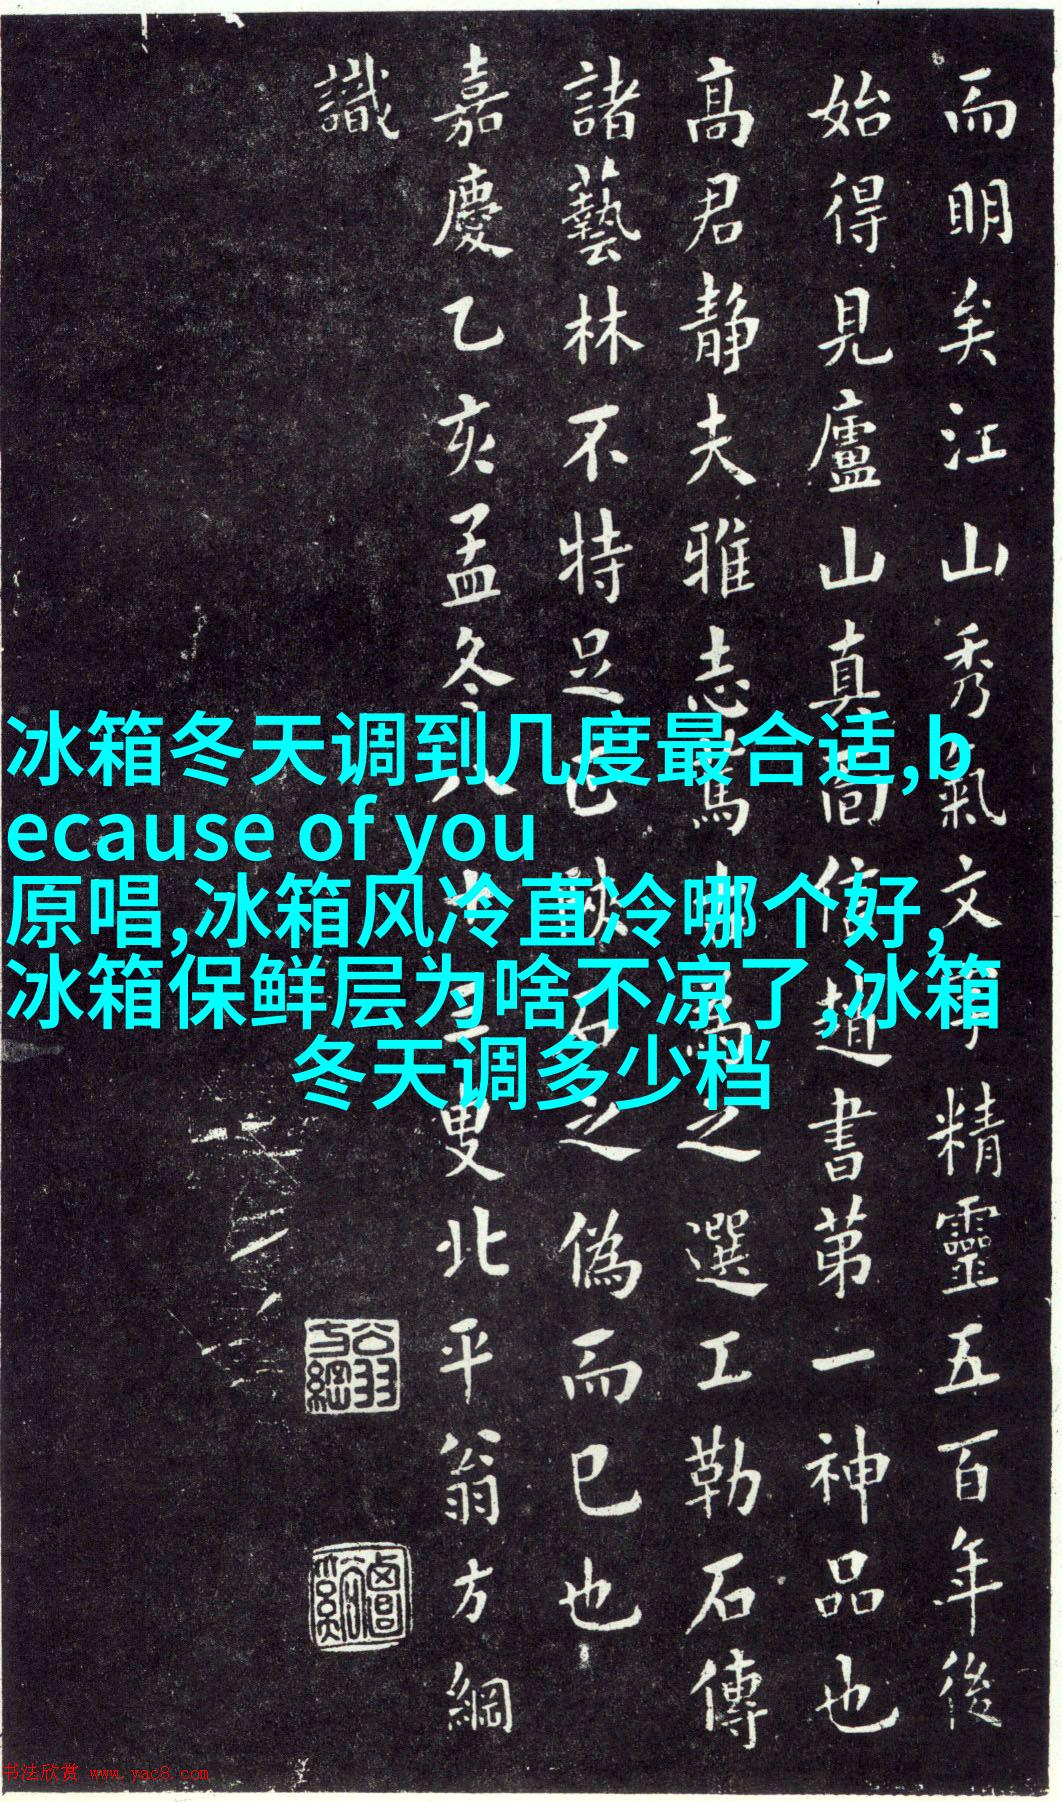 而明矣江山秀氣文字精靈五百年後
始得見廬山真面信趙書第一神品也
高君静夫雅志篤為之選工勒石傳
諸藝林不特足正陝石之偽而已也
嘉慶乙亥孟冬八十三叟北平翁方綱
識
翁方綱
冰箱冬天调到几度最合适,b
ecause of you
原唱,冰箱风冷直冷哪个好,
冰箱保鲜层为啥不凉了,冰箱
冬天调多少档
书法欣赏 www.yac8.com